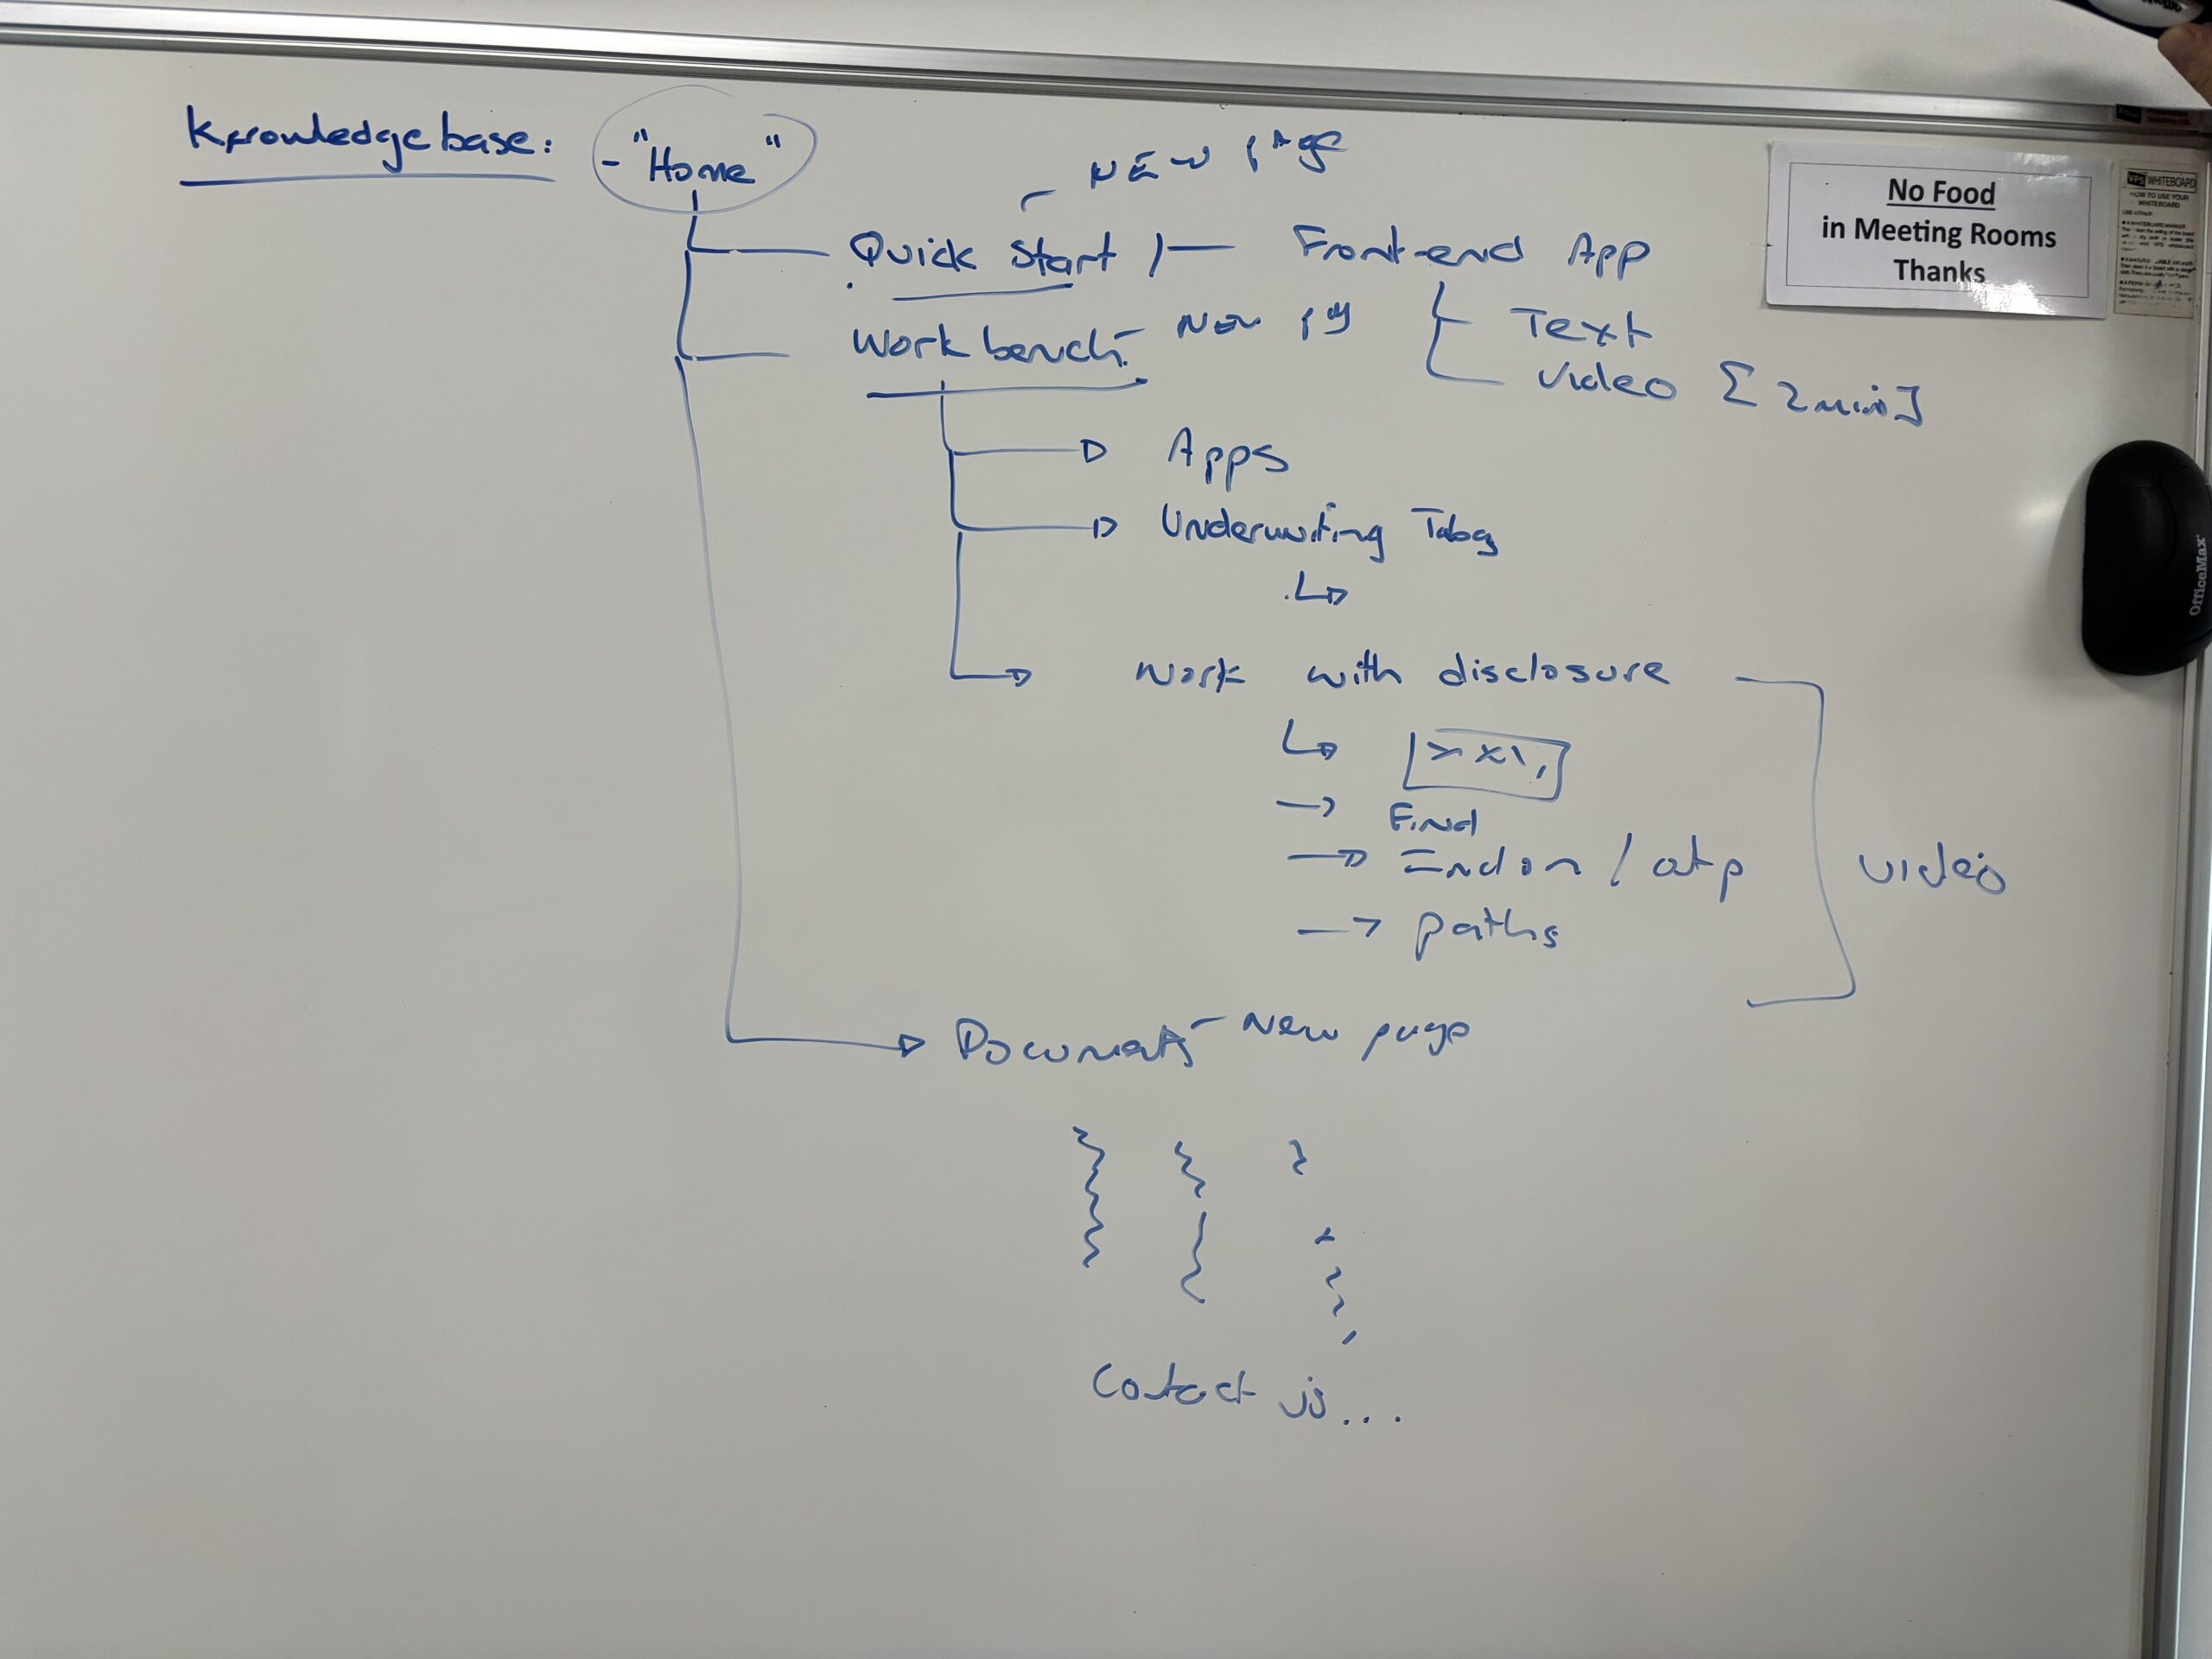 Knowledge base: - "Home"
NEW page
Quick Start - Front-end App
Work bench - New pg
Text
Video [2min]
Apps
Underwriting Tabs
Work with disclosure
Find
paths
video
Documents - New page
Contact us...
No Food
in Meeting Rooms
Thanks
VPS WHITEBOARD
HOW TO USE YOUR
WHITEBOARD
OfficeMax